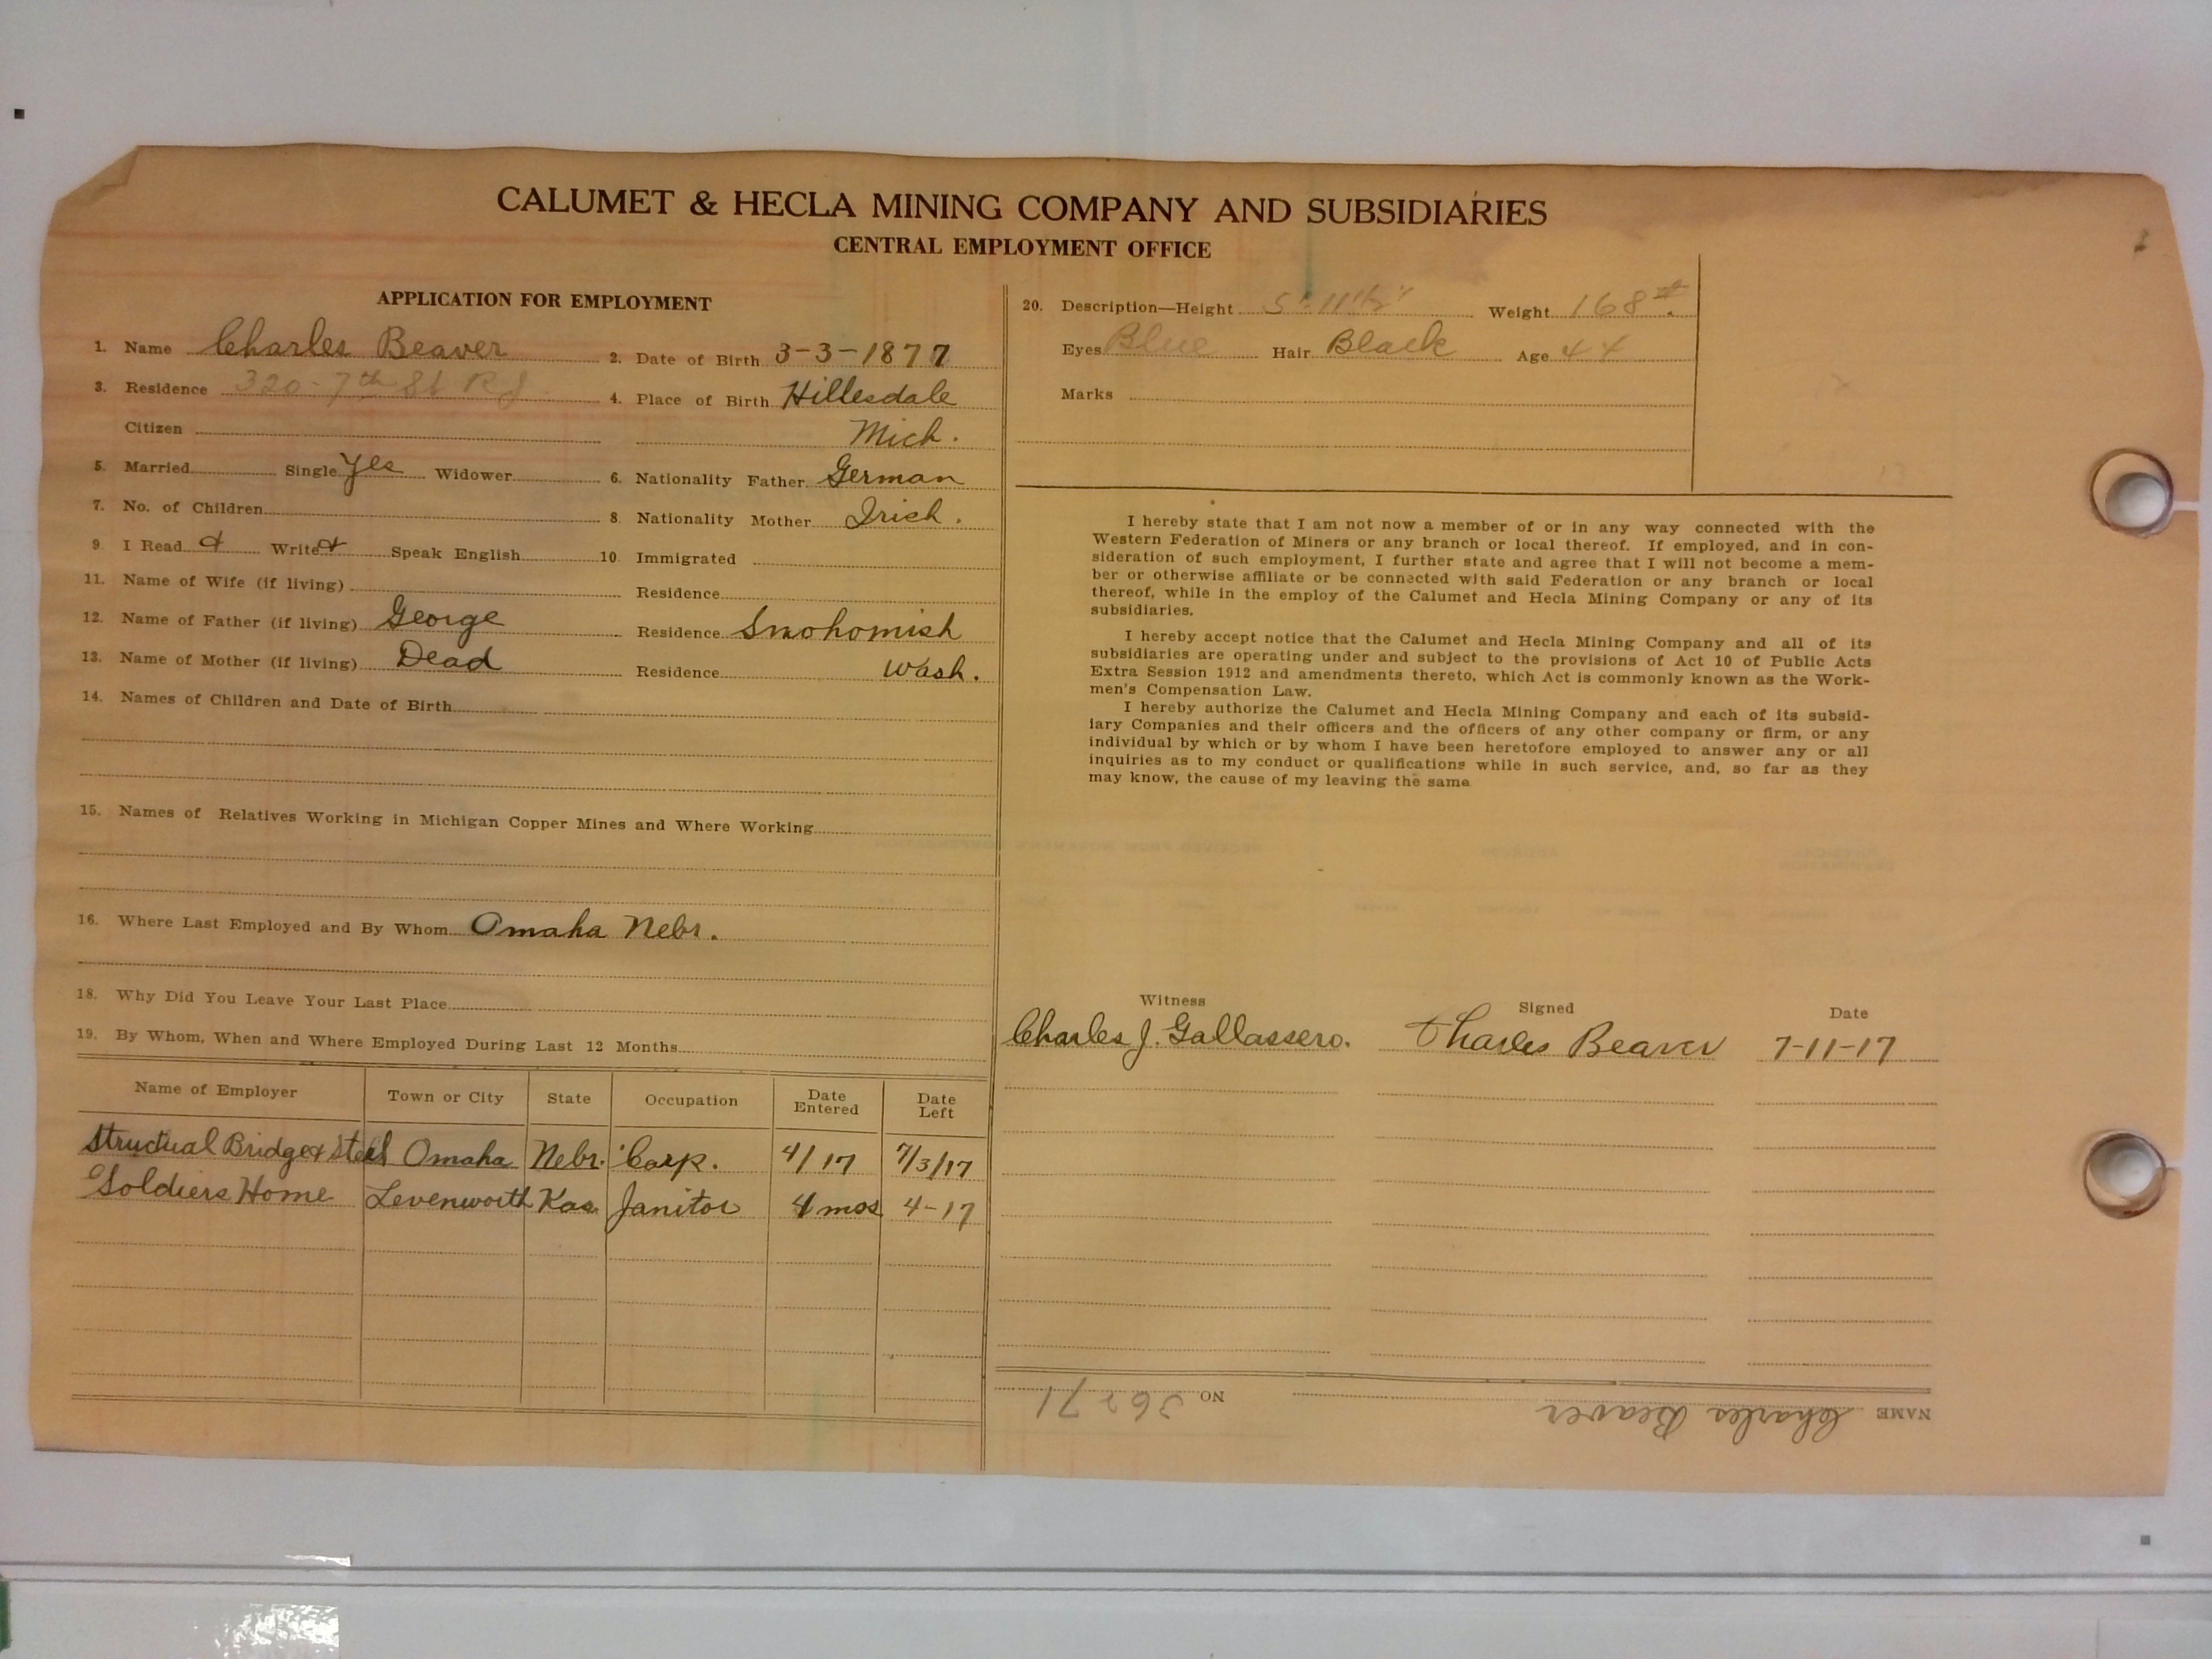 CALUMET & HECLA MINING COMPANY AND SUBSIDIARIES
CENTRAL EMPLOYMENT OFFICE
APPLICATION FOR EMPLOYMENT
1. Name Charles Beaver 2. Date of Birth 3-3-1877
3. Residence 320-7th St R J 4. Place of Birth Hillesdale
Citizen Mich.
5. Married Single Yes Widower 6. Nationality Father German
7. No. of Children 8. Nationality Mother Irish.
9. I Read & Write & Speak English 10. Immigrated
11. Name of Wife (if living) Residence
12. Name of Father (if living) George Residence Snohomish
13. Name of Mother (if living) Dead Residence Wash.
14. Names of Children and Date of Birth
15. Names of Relatives Working in Michigan Copper Mines and Where Working
16. Where Last Employed and By Whom Omaha Nebr.
18. Why Did You Leave Your Last Place
19. By Whom, When and Where Employed During Last 12 Months
Name of Employer Town or City State Occupation Date Entered Date Left
Structual Bridge & Steel Omaha Nebr. Carp. 4/17 7/3/17
Soldiers Home Levenworth Kas. Janitor 4 mos 4-17
20. Description—Height 5'-11½" Weight 168#.
Eyes Blue Hair Black Age 44
Marks
I hereby state that I am not now a member of or in any way connected with the
Western Federation of Miners or any branch or local thereof. If employed, and in con-
sideration of such employment, I further state and agree that I will not become a mem-
ber or otherwise affiliate or be connected with said Federation or any branch or local
thereof, while in the employ of the Calumet and Hecla Mining Company or any of its
subsidiaries.
I hereby accept notice that the Calumet and Hecla Mining Company and all of its
subsidiaries are operating under and subject to the provisions of Act 10 of Public Acts
Extra Session 1912 and amendments thereto, which Act is commonly known as the Work-
men's Compensation Law.
I hereby authorize the Calumet and Hecla Mining Company and each of its subsid-
iary Companies and their officers and the officers of any other company or firm, or any
individual by which or by whom I have been heretofore employed to answer any or all
inquiries as to my conduct or qualifications while in such service, and, so far as they
may know, the cause of my leaving the same
Witness Signed Date
Charles J. Gallassero. Charles Beaver 7-11-17
NAME Charles Beaver NO 36271